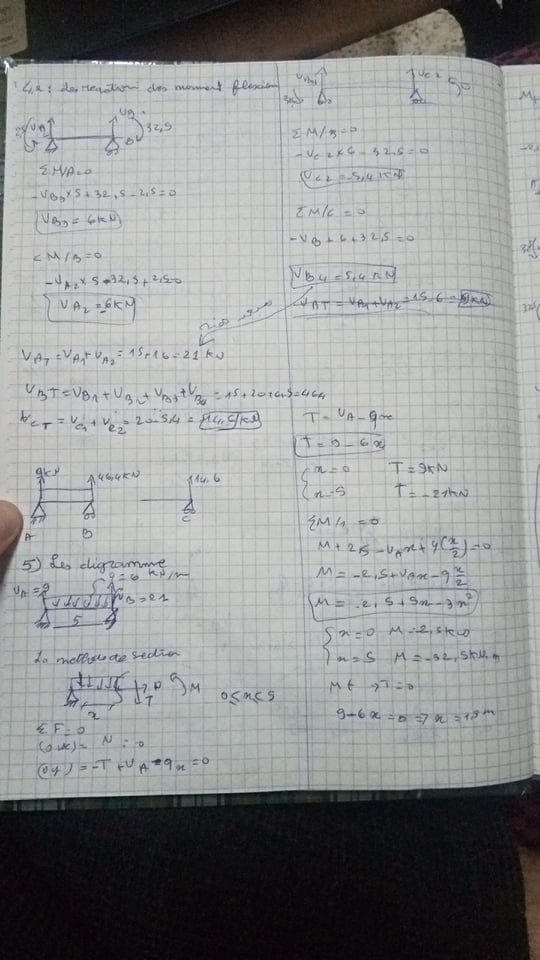 4.2: Les reaction des moment flexion
VA
VB
32,5
ΣM/A=0
-VB3×5+32,5-2,5=0
VB3=6kN
ΣM/B=0
-VA2×5-32,5+2,5=0
VA2=-6kN
VAT=VA1+VA2=15+6=21kN
VBT=VB1+VB2+VB3+VB4=15+20+6+5,4=46,4
VCT=VC1+VC2=20-5,4=14,6kN
9kN
46,4kN
14,6
A
B
C
5) Les digramme
q=6 kN/m
VA=9
VB=21
5
La methode de section
x
N
T
M
0≤x≤5
ΣF=0
(ox)= N=0
(oy)=-T+VA-qx=0
VC2
ΣM/B=0
-VC2×6-32,5=0
VC2=-5,4kN
ΣM/C=0
-VB+6+32,5=0
VB4=5,4kN
VAT=VA1+VA2=15-6=9kN
T=VA-qx
T=9-6x
x=0 T=9kN
x=5 T=-21kN
ΣM/1=0
M=-2,5+VAx-q x/2
M=-2,5+9x-3x²
x=0 M=-2,5kN
x=5 M=-32,5kN.m
Mf →T=0
9-6x=0 ⇒ x=1,5m